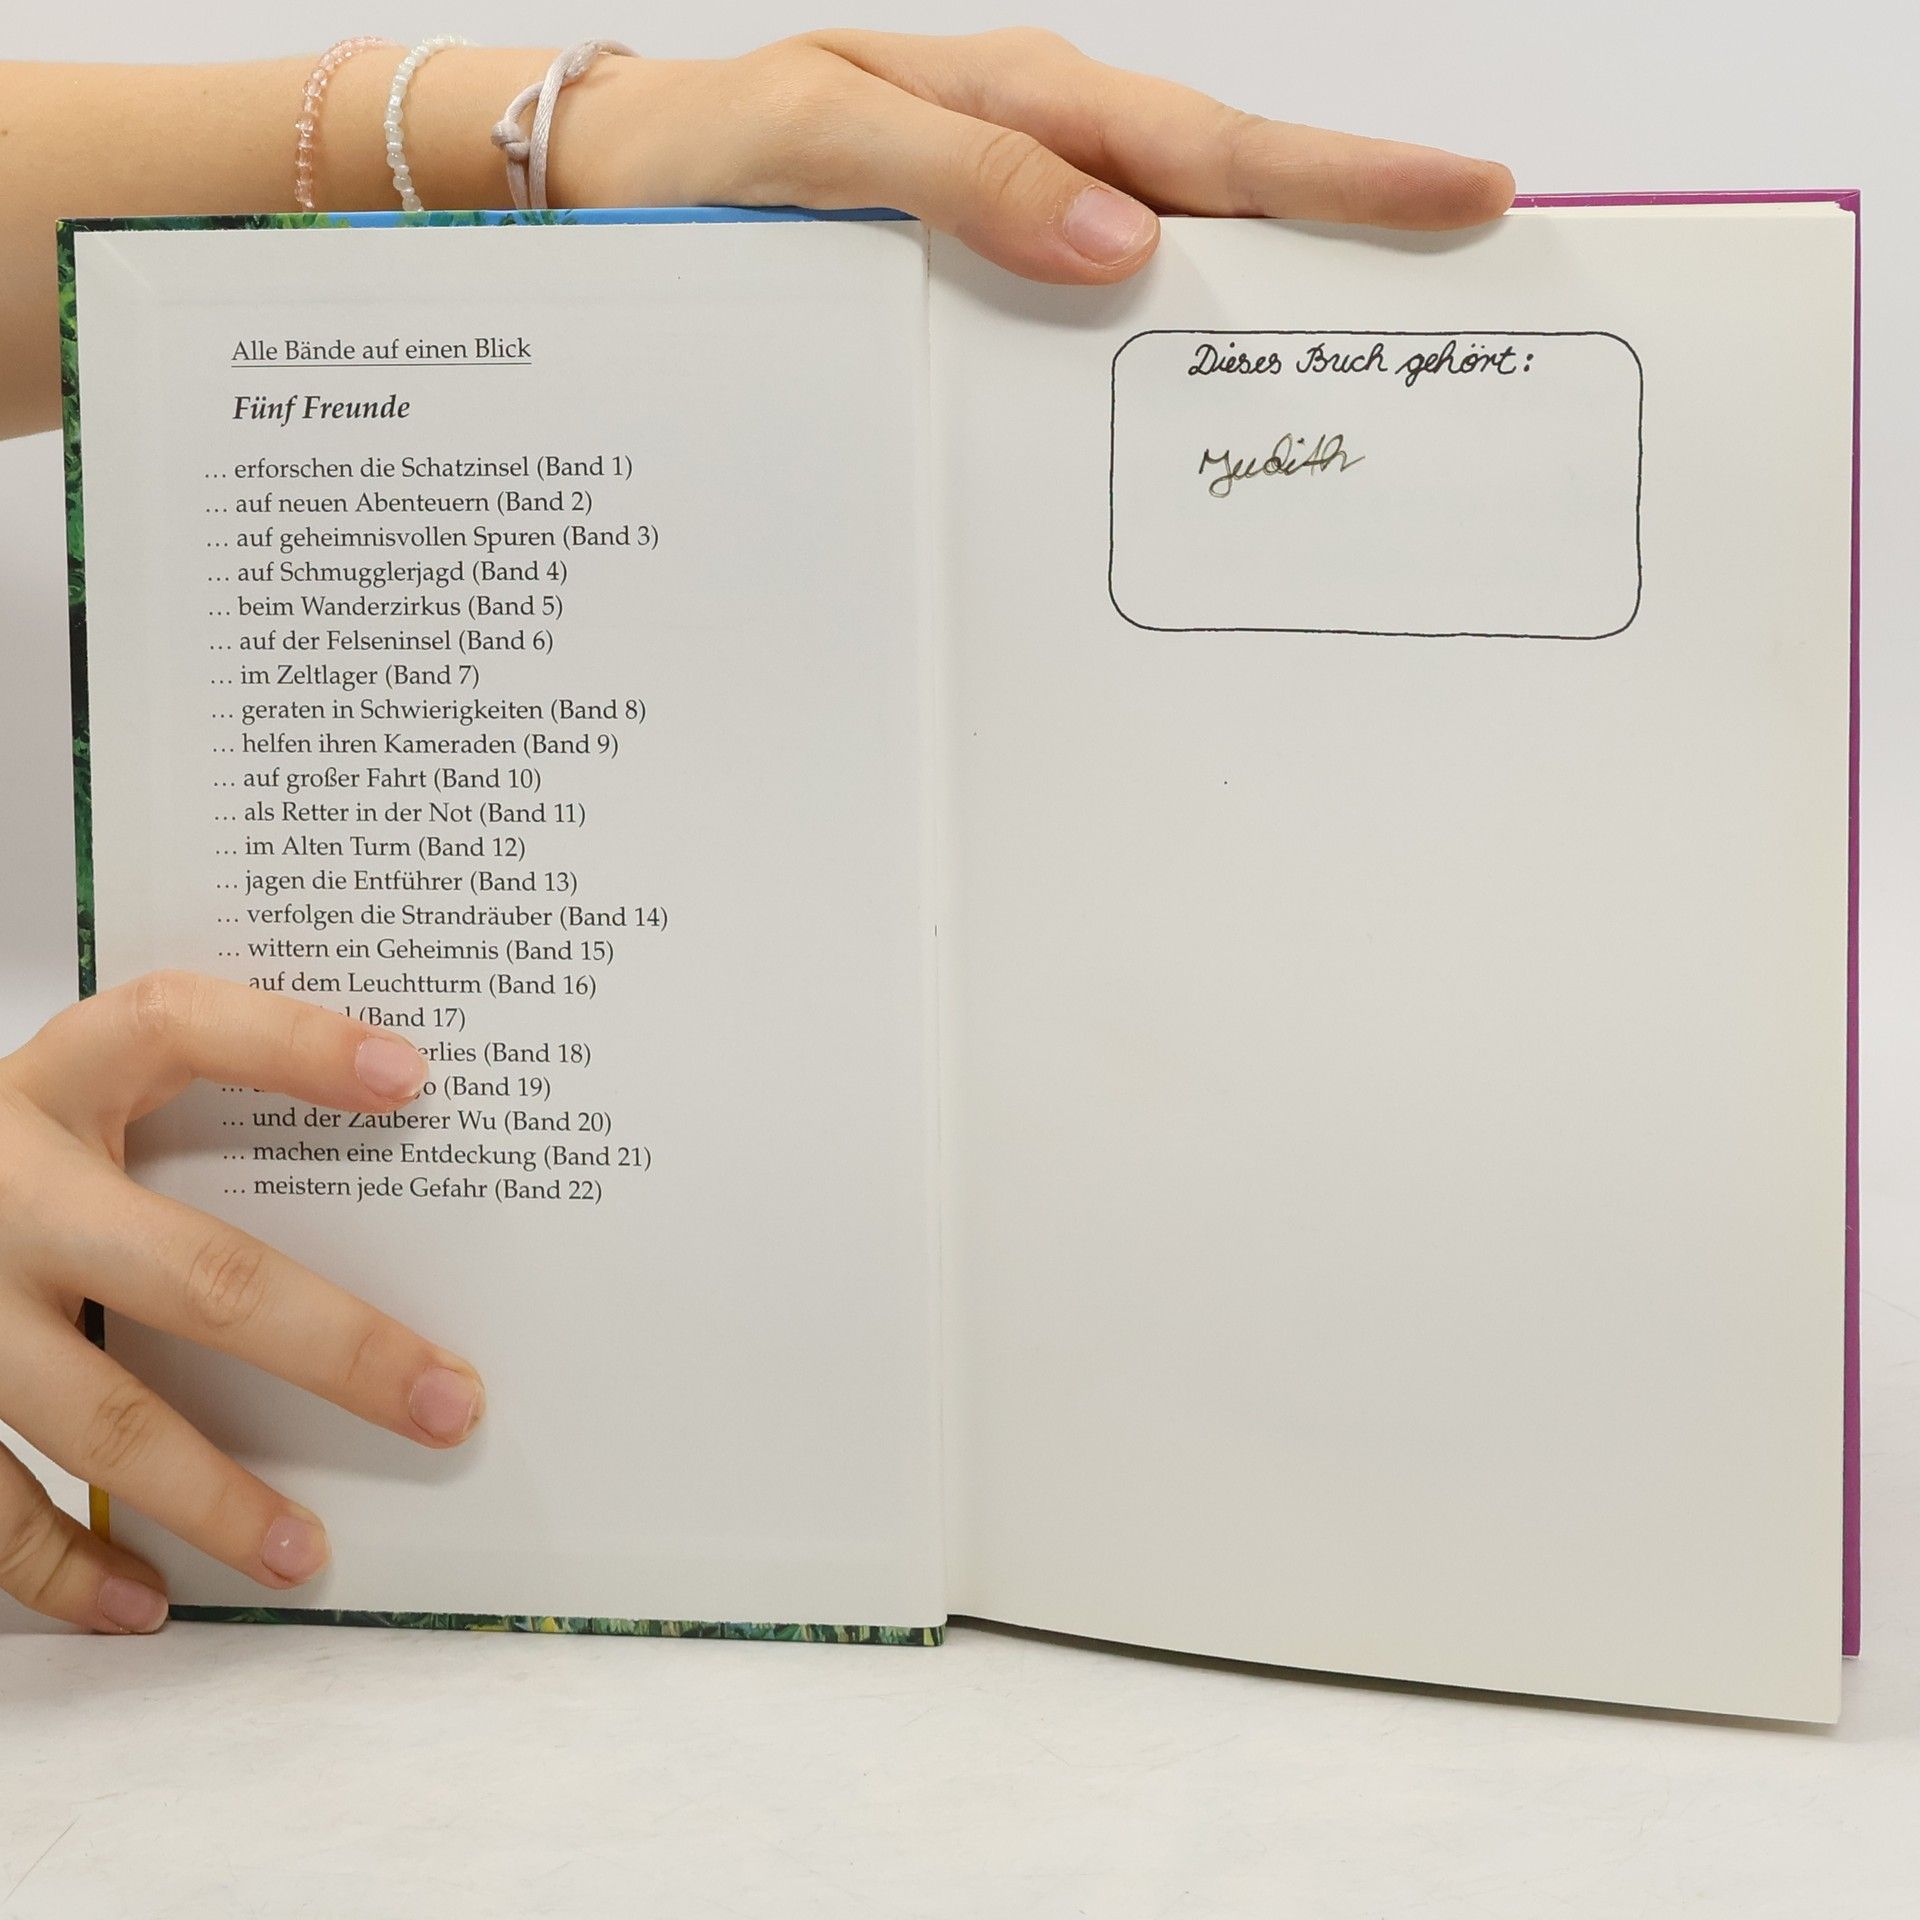 Alle Bände auf einen Blick
Fünf Freunde
… erforschen die Schatzinsel (Band 1)
… auf neuen Abenteuern (Band 2)
… auf geheimnisvollen Spuren (Band 3)
… auf Schmugglerjagd (Band 4)
… beim Wanderzirkus (Band 5)
… auf der Felseninsel (Band 6)
… im Zeltlager (Band 7)
… geraten in Schwierigkeiten (Band 8)
… helfen ihren Kameraden (Band 9)
… auf großer Fahrt (Band 10)
… als Retter in der Not (Band 11)
… im Alten Turm (Band 12)
… jagen die Entführer (Band 13)
… verfolgen die Strandräuber (Band 14)
… wittern ein Geheimnis (Band 15)
auf dem Leuchtturm (Band 16)
(Band 17)
(Band 18)
… (Band 19)
… und der Zauberer Wu (Band 20)
… machen eine Entdeckung (Band 21)
… meistern jede Gefahr (Band 22)
Dieses Buch gehört:
Judith